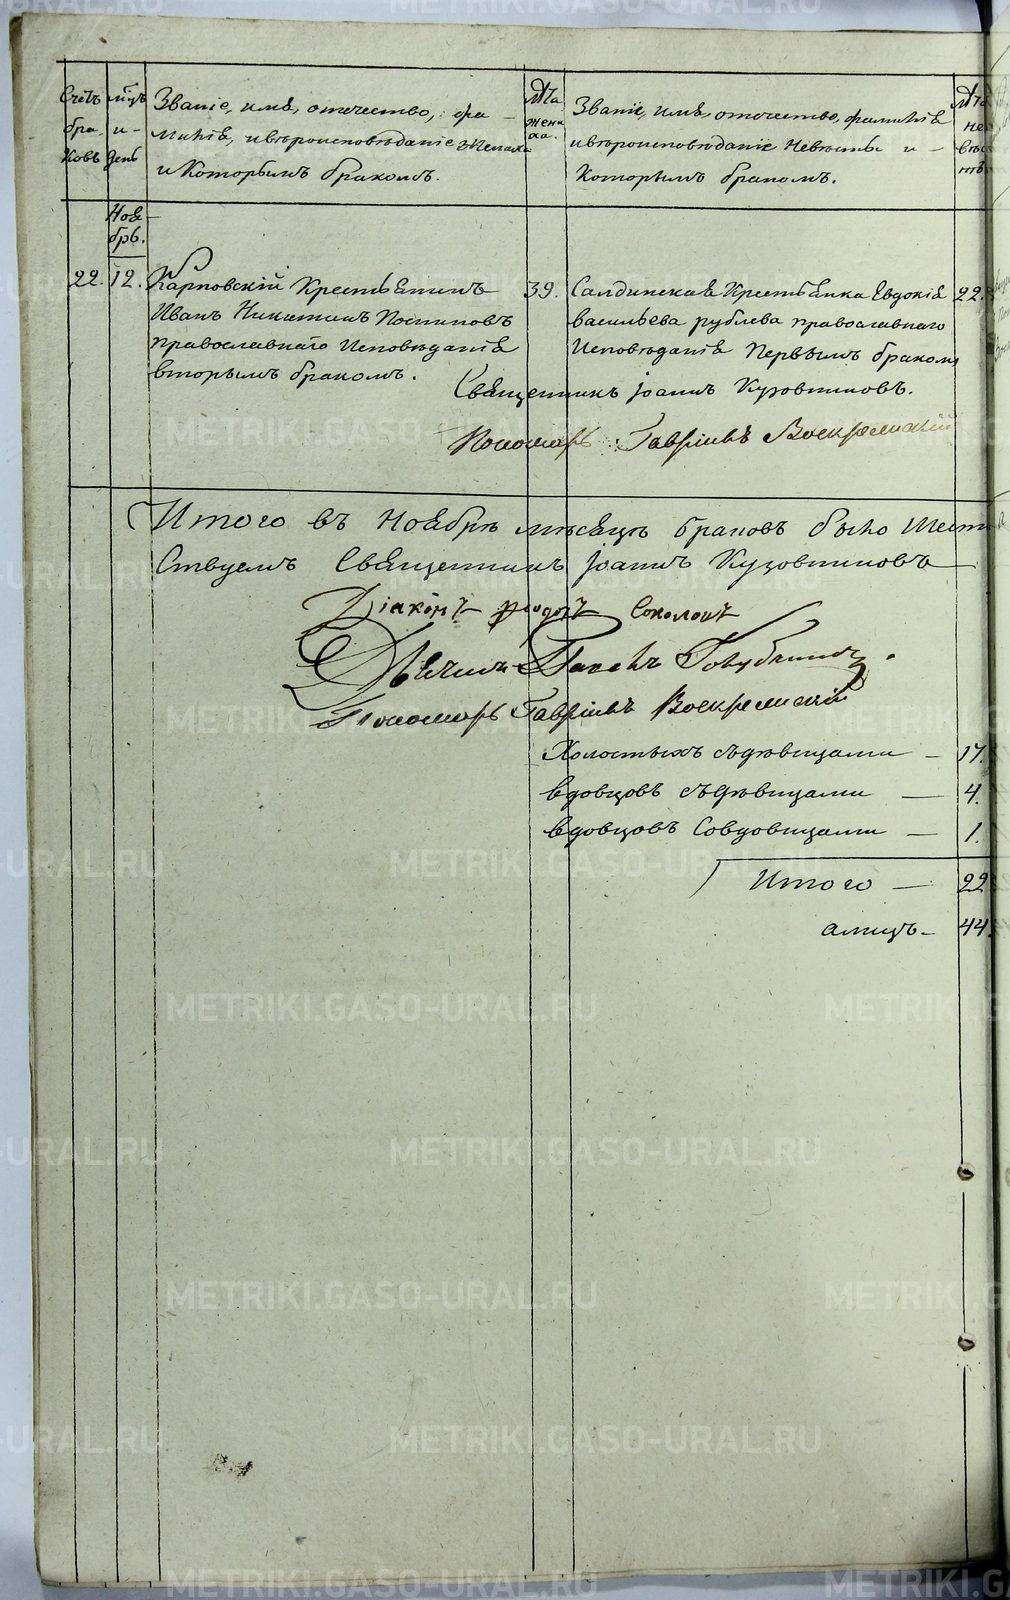 Счетъ браковъ
мѣцъ и день
Званіе, имя, отечество, фа-
милія, и вѣроисповѣданіе Жениха
и Которымъ бракомъ.
Лѣта жениха.
Званіе, имя, отечество, фамилія
и вѣроисповѣданіе Невѣсты и -
Которымъ бракомъ.
Лѣта невѣсты
Ноя
брь.
22. 12. Карповскій Крестьянинъ 39. Салдинская Крестьянка Евдокія 22.
Иванъ Никитинъ Постниковъ Васильева Рублева православнаго
православнаго Исповѣданія Исповѣданія Первымъ бракомъ
вторымъ бракомъ.
Священникъ Іоаннъ Кузовниковъ.
Пономарь Гавріилъ Воскресенскій
Итого въ Ноябрѣ мѣсяцѣ браковъ было Шесть
Ствуемъ Священникъ Іоаннъ Кузовниковъ
Діаконъ Ѳеодоръ Соколовъ
Дьячекъ Павелъ Голубчиковъ.
Пономарь Гавріилъ Воскресенскій
Холостыхъ съ дѣвицами — 17.
Вдовцовъ съ дѣвицами — 4.
Вдовцовъ Совдовицами — 1.
Итого — 22
а лицъ — 44.
METRIKI.GASO-URAL.RU